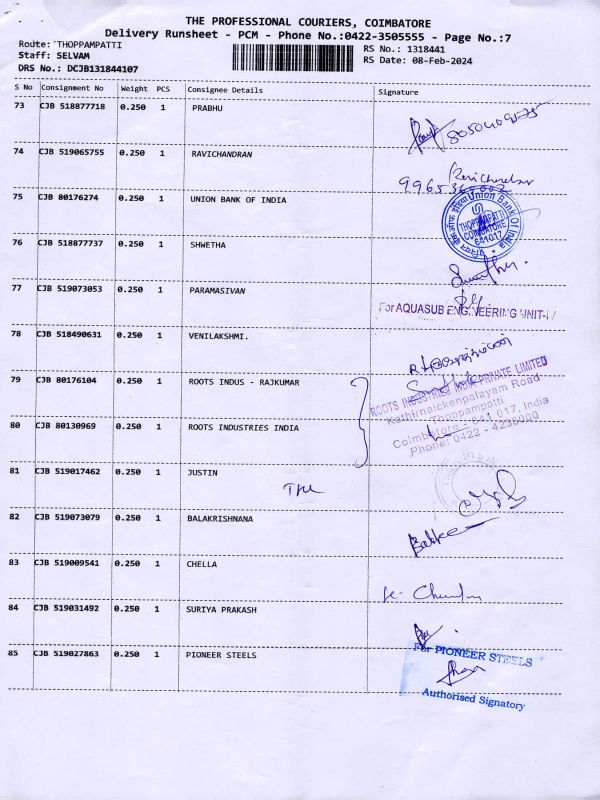 THE PROFESSIONAL COURIERS, COIMBATORE
Delivery Runsheet - PCM - Phone No.:0422-3505555 - Page No.:7
Route: THOPPAMPATTI
Staff: SELVAM
DRS No.: DCJB131844107
RS No.: 1318441
RS Date: 08-Feb-2024
S No Consignment No Weight PCS Consignee Details Signature
73 CJB 518877718 0.250 1 PRABHU
74 CJB 519065755 0.250 1 RAVICHANDRAN
Ravichandran
75 CJB 80176274 0.250 1 UNION BANK OF INDIA
Union Bank Of India
THOPPAMPATTI
COIMBATORE
641017
76 CJB 518877737 0.250 1 SHWETHA
77 CJB 519073053 0.250 1 PARAMASIVAN
For AQUASUB ENGINEERING UNIT-I
78 CJB 518490631 0.250 1 VENILAKSHMI.
79 CJB 80176104 0.250 1 ROOTS INDUS - RAJKUMAR
ROOTS INDUSTRIES INDIA PRIVATE LIMITED
Kathirnaickenpalayam Road
Thoppampatti
Coimbatore - 641 017, India
Phone: 0422 - 4235000
80 CJB 80130969 0.250 1 ROOTS INDUSTRIES INDIA
81 CJB 519017462 0.250 1 JUSTIN
82 CJB 519073079 0.250 1 BALAKRISHNANA
83 CJB 519009541 0.250 1 CHELLA
84 CJB 519031492 0.250 1 SURIYA PRAKASH
85 CJB 519027863 0.250 1 PIONEER STEELS
For PIONEER STEELS
Authorised Signatory